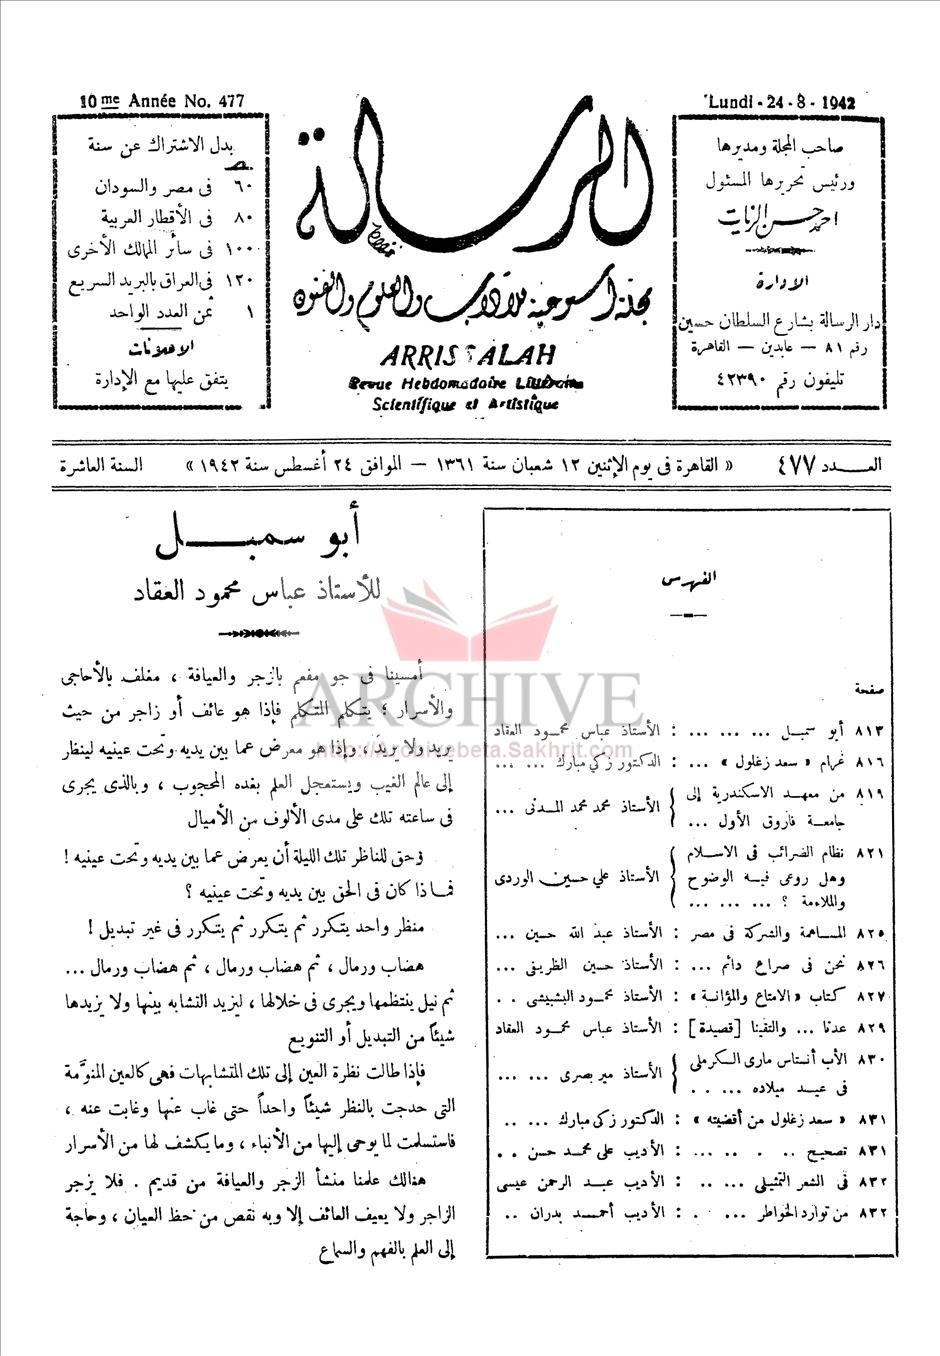 10me Année No. 477
Lundi - 24 - 8 - 1942
بدل الاشتراك عن سنة
ص
٦٠ فى مصر والسودان
٨٠ فى الأقطار العربية
١٠٠ فى سائر الممالك الأخرى
١٢٠ فى العراق بالبريد السريع
١ ثمن العدد الواحد
الاعلانات
يتفق عليها مع الإدارة
الرسالة
مجلة أسبوعية للآداب والعلوم والفنون
ARRISSALAH
Revue Hebdomadaire Littéraire
Scientifique et Artistique
صاحب المجلة ومديرها
ورئيس تحريرها المسئول
احمد حسن الزيات
الادارة
دار الرسالة بشارع السلطان حسين
رقم ٨١ — عابدين — القاهرة
تليفون رقم ٤٢٣٩٠
العـــدد ٤٧٧
« القاهرة فى يوم الإثنين ١٢ شعبان سنة ١٣٦١ — الموافق ٢٤ أغسطس سنة ١٩٤٢ »
السنة العاشرة
الفهرس
صفحة
٨١٣ أبو سمبـل ... ... ... : الأستاذ عباس محمـود العقاد
٨١٦ غرام « سعد زغلول » ... : الدكتور زكى مبارك ... ...
٨١٩ من معهد الاسكندرية إلى
جامعـة فاروق الأول ...
الأستاذ محمد محمد المـدنى ...
٨٢١ نظام الضرائب فى الاسـلام
وهل روعى فيـه الوضوح
والملاءمة ؟ ... ... ...
الأستاذ علي حسـين الوردى
٨٢٥ المسـاهمة والشركة فى مصر : الأستاذ عبـد الله حسـين ...
٨٢٦ نحن فى صراع دائم ... : الأستاذ حسـين الظريفى ...
٨٢٧ كتاب « الامتاع والمؤانسة » : الأستاذ محمـود البشبيشى . .
٨٢٩ عدنا ... والتقينا [قصيدة] : الأستاذ عباس محمـود العقاد
٨٣٠ الأب أنستاس مارى الكرملى
فى عيـد ميلاده ... . .
الأستاذ مير بصرى ... ...
٨٣١ « سعد زغلول من أقضيته » : الدكتور زكى مبارك ... ..
٨٣١ تصحيح .. . .. ... : الأديب على محمـد حسن . .
٨٣٢ فى الشعر التمثيلى ... .. : الأديب عبـد الرحمن عيسى
٨٣٢ من توارد الخواطر ... . : الأديب أحمـد بدران ..
أبو سمبـــــل
للأستاذ عباس محمود العقاد
أمسينا فى جو مفعم بالزجر والعيافة ، مغلف بالأحاجى
والأسرار ؛ يتكلم المتكلم فإذا هو عائف أو زاجر من حيث
يريد ولا يريد ، وإذا هو معرض عما بين يديه وتحت عينيه لينظر
إلى عالم الغيب ويستعجل العلم بغده المحجوب ، وبالذى يجرى
فى ساعته تلك على مدى الألوف من الأميال
وحق للناظر تلك الليلة أن يعرض عما بين يديه وتحت عينيه !
فماذا كان فى الحق بين يديه وتحت عينيه ؟
منظر واحد يتكرر ثم يتكرر ثم يتكرر فى غير تبديل !
هضاب ورمال ، ثم هضاب ورمال ، ثم هضاب ورمال ...
ثم نيل ينتظمها ويجرى فى خلالها ، ليزيد التشابه بينها ولا يزيدها
شيئاً من التبديل أو التنويع
فإذا طالت نظرة العين إلى تلك المتشابهات فهى كالعين المنوَّمة
التى حدجت بالنظر شيئاً واحداً حتى غاب عنها وغابت عنه ،
فاستسلمت لما يوحى إليها من الأنباء ، وما يكشف لها من الأسرار
هنالك علمنا منشأ الزجر والعيافة من قديم . فلا يزجر
الزاجر ولا يعيف العائف إلا وبه نقص من حظ العيان ، وحاجة
إلى العلم بالفهم والسماع
ARCHIVE
http://Archivebeta.Sakhrit.com